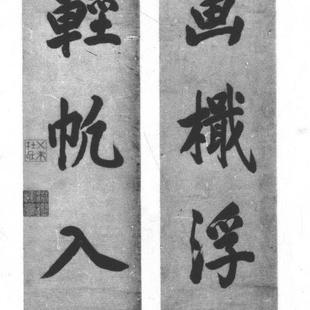 画檝浮
輕帆入